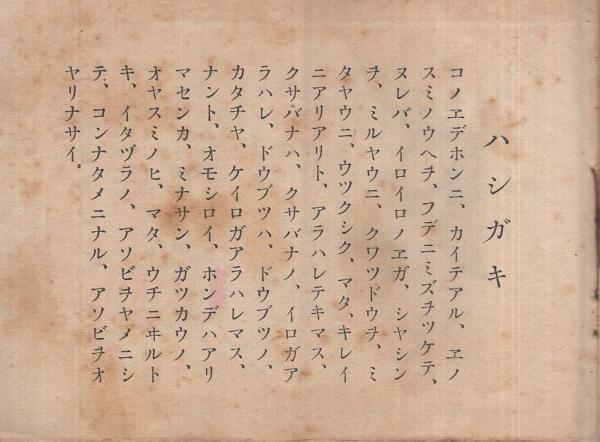 ハシガキ
コノヱデホンニ、カイテアル、ヱノ
スミノウヘヲ、フデニミズヲツケテ、
ヌレバ、イロイロノヱガ、シヤシン
ヲ、ミルヤウニ、クワツドウヲ、ミ
タヤウニ、ウツクシク、マタ、キレイ
ニアリアリト、アラハレテキマス、
クサバナハ、クサバナノ、イロガア
ラハレ、ドウブツハ、ドウブツノ、
カタチヤ、ケイロガアラハレマス、
ナント、オモシロイ、ホンデハアリ
マセンカ、ミナサン、ガツカウノ、
オヤスミノヒ、マタ、ウチニヰルト
キ、イタヅラノ、アソビヲヤメニシ
テ、コンナタメニナル、アソビヲオ
ヤリナサイ。